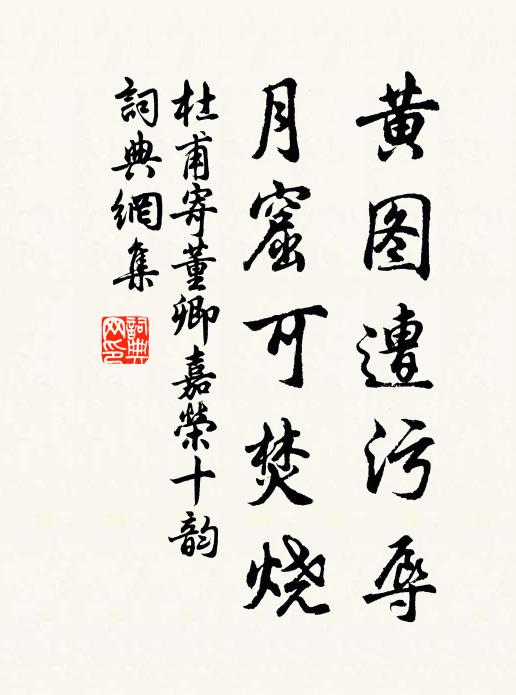 黄图遭污辱
月窟可焚烧
杜甫寄董卿嘉榮十韵
詞典網集
詞典网印